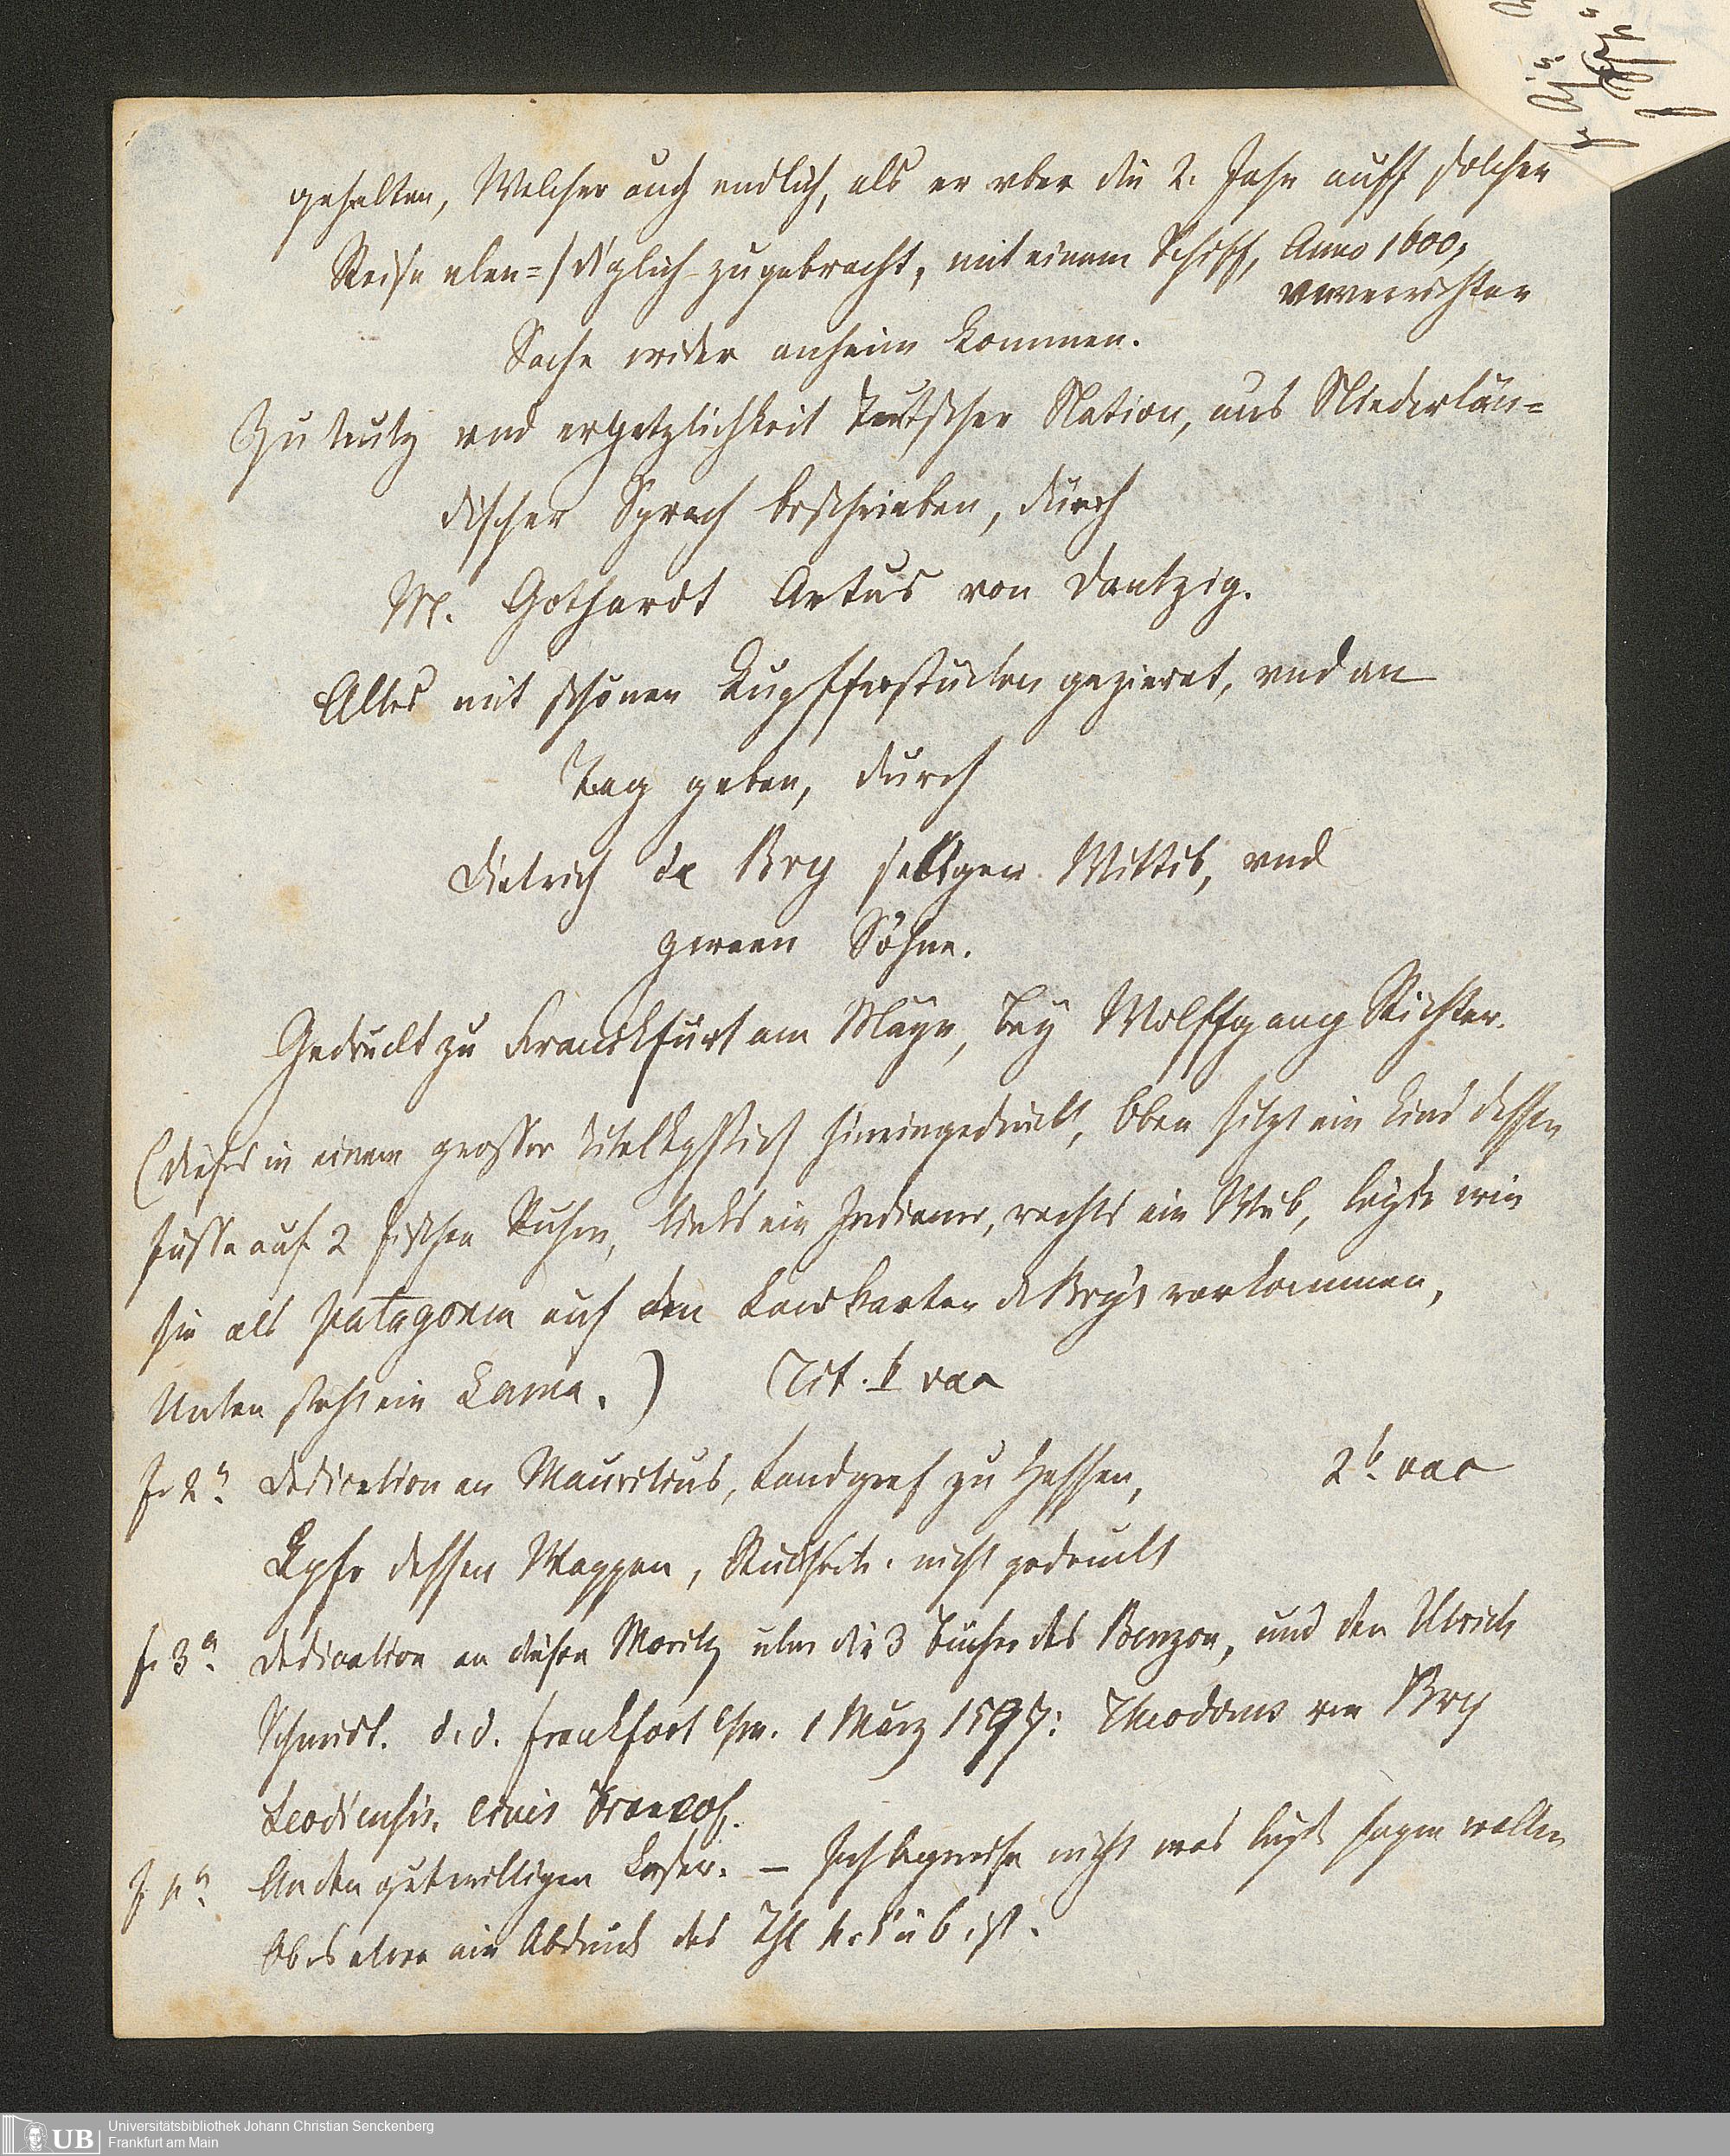 gehalten, Welcher auch endlich, als er vber die 2. Jahr auff solcher
Reise elen=/diglich zugebracht, mit einem Schiff, Anno 1600,
vnverrichter
Sache wider anheim kommen.
Zu nutz vnd ergetzlichkeit Teutscher Nation, aus Niederlän=
discher Sprach beschrieben, durch
M. Gothardt Artus von Dantzig.
Alles mit schönen Kupfferstücken gezieret, vnd an
Tag geben, durch
Dietrich de Bry seligen Wittib, vnd
zween Söhne.
Gedruckt zu Franckfurt am Mayn, bey Wolffgang Richter.
(dieses in einem grossen titelkpfstich hineingedruckt, Oben sitzt ein Kind dessen
füsse auf 2 fischen Ruhen, links ein Indianer, rechts ein Weib, beyde wie
sie als Patagonen auf den Landkarten de Bry's vorkommen,
Unten steht ein Lama.) Tit. b vac
f. 2a. Dedication an Mauritius, Landgraf zu Hessen, 2b. vac
Kpfr dessen Wappen, Rückseite nicht gedruckt
f. 3a. Dedication an diesen Moritz über die 3 bücher des Benzon, und den Ulrich
Schmidt. d. d. Frankfort 1 März 1597: Theodorus von Bry
Leodiensis. civis Francof.
f. 4a. An den gutwilligen Leser. – Ich begreife nicht was beyde sagen wollen
Ob es etwa ein Abdruck des Thl 4. 5 u 6. ist.
Universitätsbibliothek Johann Christian Senckenberg
Frankfurt am Main
UB